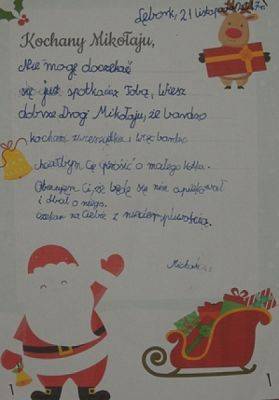 Lębork, 21 listopada
Kochany Mikołaju,
Nie mogę doczekać
się już spotkania z Tobą, Wiesz
dobrze Drogi Mikołaju, że bardzo
kocham zwierzątka i więc bardzo
chciałbym Cię prosić o małego kotka.
Obiecuję Ci, że będę się nim opiekował
i dbał o niego.
Czekam na Ciebie z niecierpliwością.
1
1